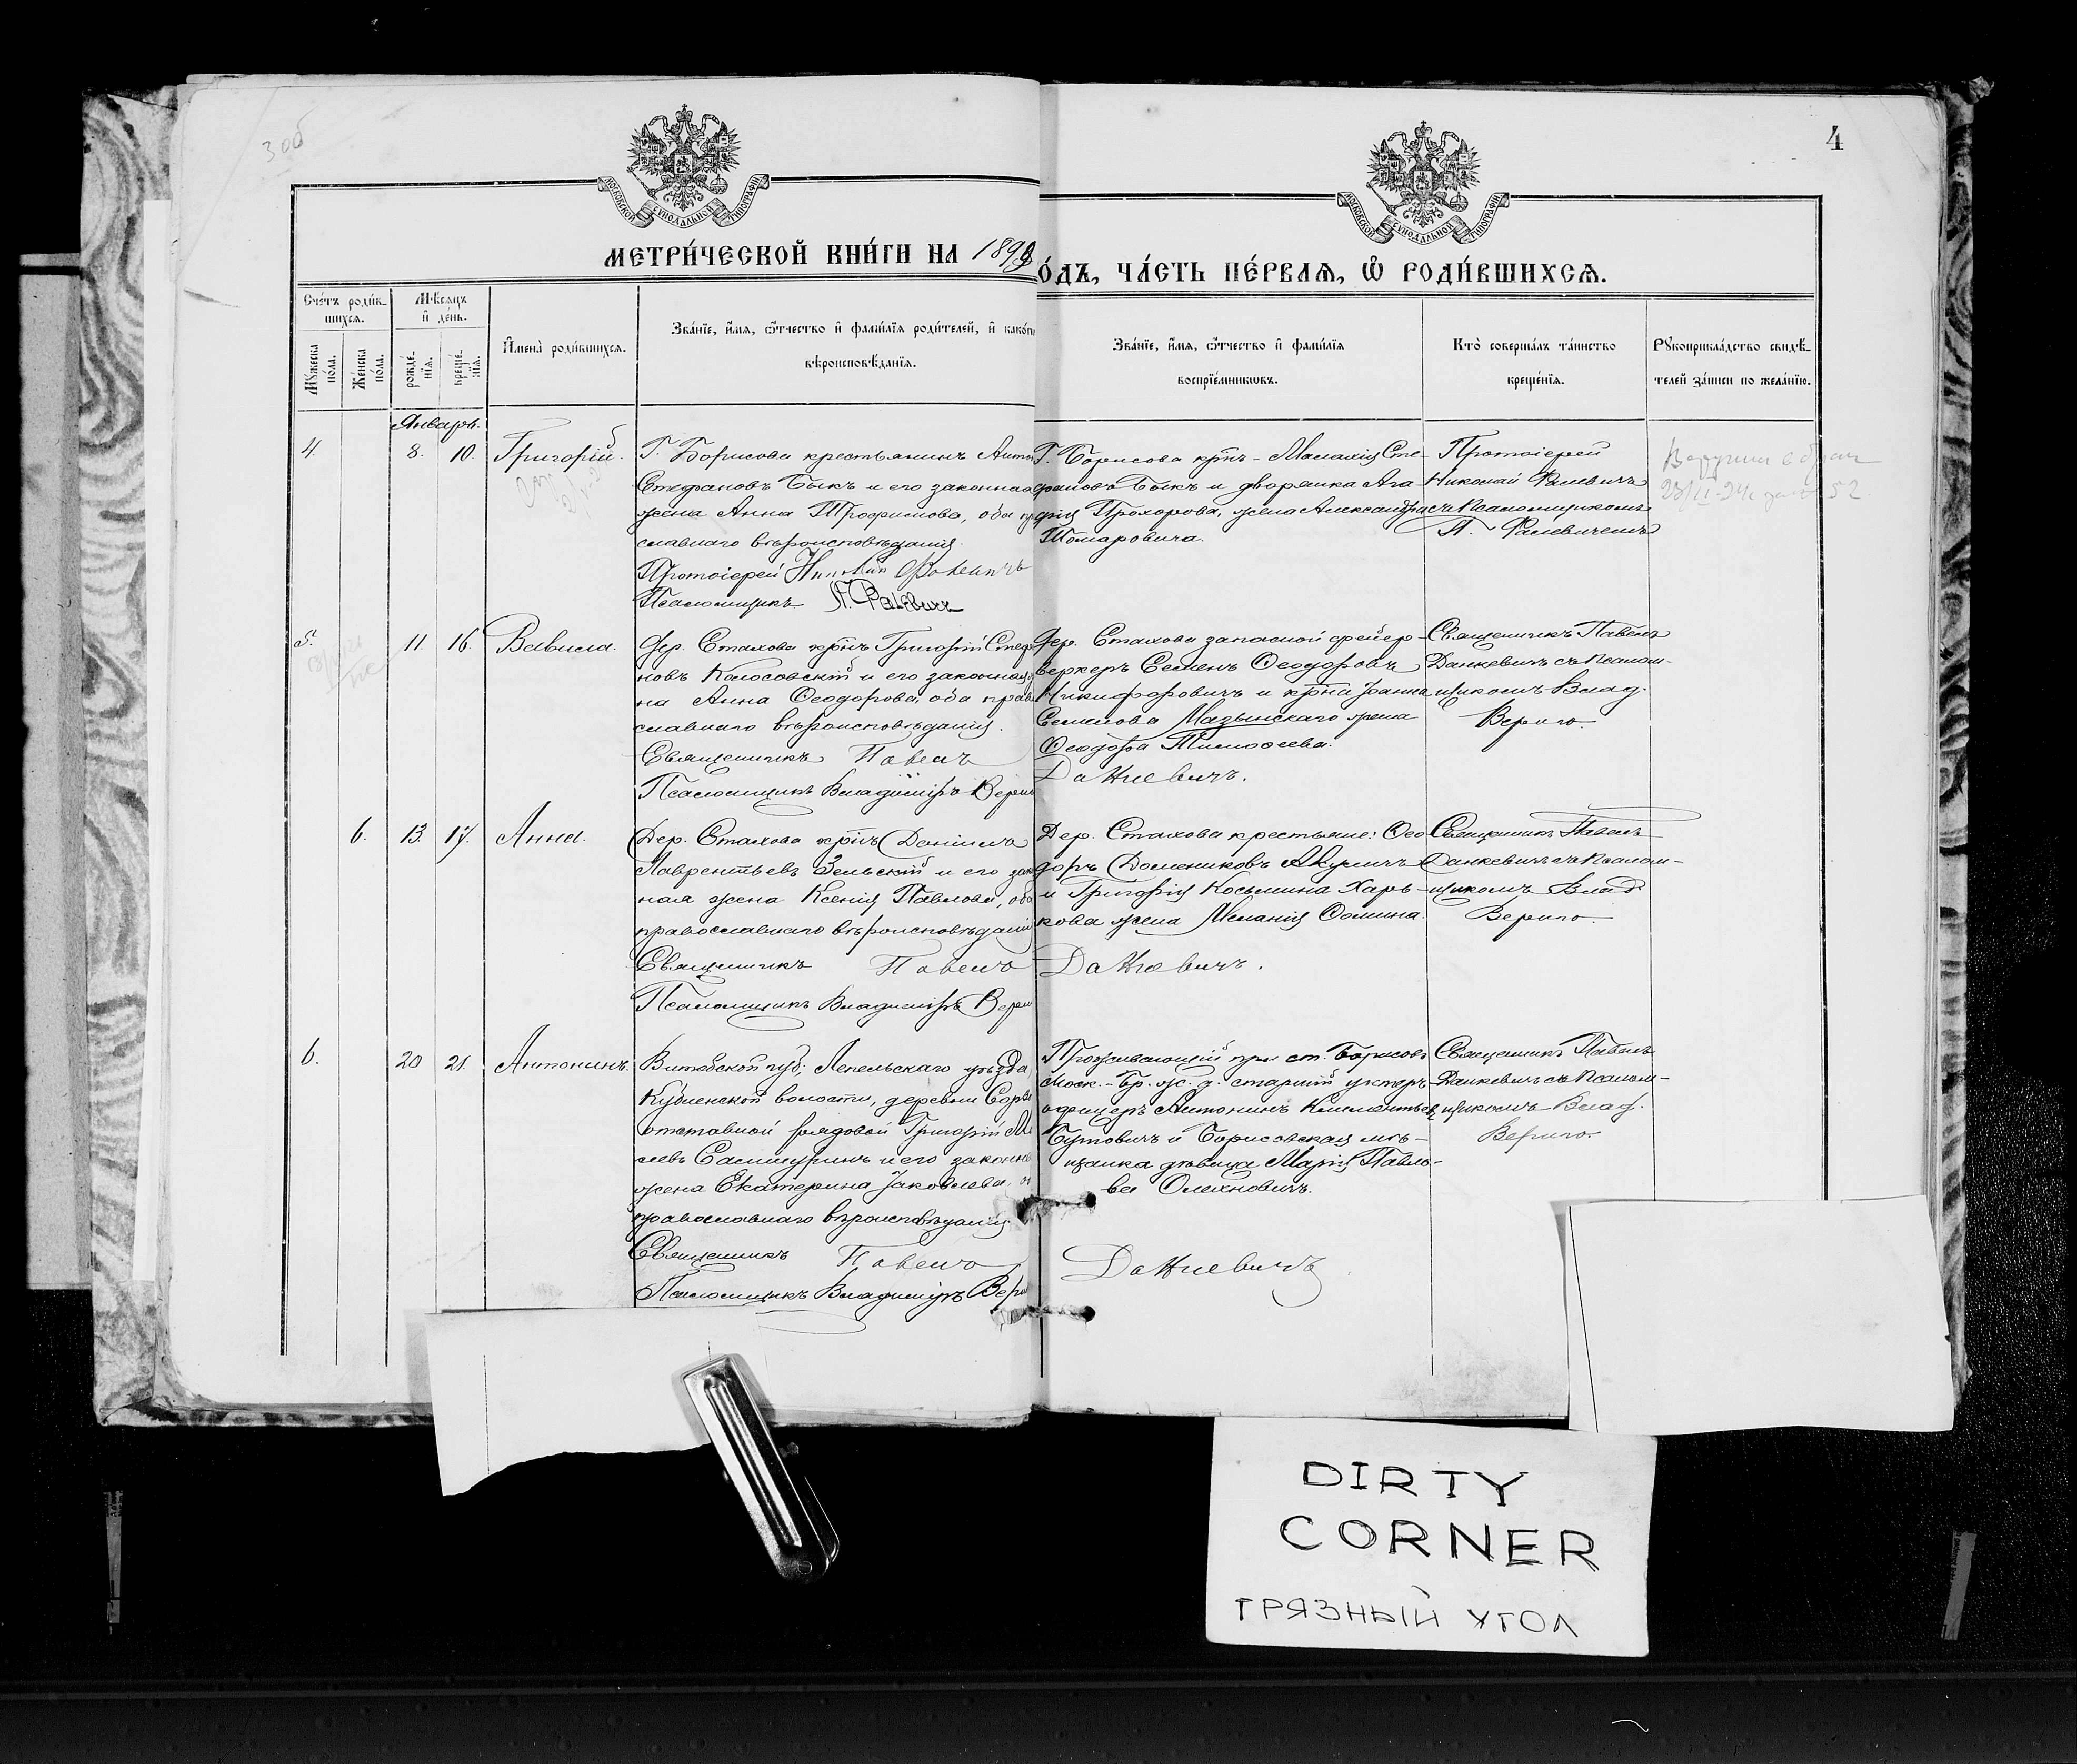 4
МОСКОВСКОЙ СѴНОДАЛЬНОЙ ТИПОГРАФІИ
МОСКОВСКОЙ СѴНОДАЛЬНОЙ ТИПОГРАФІИ
МЕТРИ́ЧЕСКОЙ КНИ́ГИ НА 1898
О́ДЪ, ЧА́СТЬ ПЕ́РВАѦ, Ѡ҆ РОДИ́ВШИХСѦ.
Сче́тъ роди́в-
шихсѧ.
Мѣ́сѧцъ
и҆ де́нь.
Мꙋ́жеска
по́ла.
Же́нска
по́ла.
рожде́-
нїѧ.
креще́-
нїѧ.
И҆мена̀ роди́вшихсѧ.
Зва́нїе, и҆́мѧ, ѻ҆́тчество и҆ фами́лїѧ роди́телей, и҆ како́гѡ
вѣроисповѣ́данїѧ.
Зва́нїе, и҆́мѧ, ѻ҆́тчество и҆ фами́лїѧ
воспрїе́мникѡвъ.
Кто̀ соверша́лъ та́инство
креще́нїѧ.
Рꙋкоприкла́дство свидѣ́-
телей за́писи по жела́нїю.
Январь.
4
8.
10.
Григорій.
Г. Борисова крестьянинъ Анто
Стефановъ Быкъ и его законная
жена Анна Трофимова, оба п
славнаго вѣроисповѣданія.
Протоіерей Николай Фалевичъ
Псаломщикъ П. Фалевичъ
Г. Борисова крн- Малахій Сте-
фановъ Быкъ и дворянка Ага-
фія Прохорова, жена Александра
Томаровича.
Протоіерей
Николай Фалевичъ
съ Псаломщикомъ
П. Фалевичемъ
5.
11.
16.
Вавила.
Дер. Стахова крнъ Григорій Стеф
новъ Колосовскій и его законная
на Анна Ѳеодорова, оба прав
славнаго вѣроисповѣданія.
Священникъ Павелъ
Псаломщикъ Владиміръ Вериг
Дер. Стахова запасной фейер-
веркеръ Семенъ Ѳеодоровъ
Никифоровичъ и крна Іоанна
Семенова Мазынскаго жена
Ѳеодора Тимоѳеева.
Данкевичъ.
Священникъ Павелъ
Данкевичъ съ Псалом-
щикомъ Влад.
Вериго.
6.
13.
17.
Анна.
Дер. Стахова крнъ Даніилъ
Лаврентьевъ Зельскій и его зак
ная жена Ксенія Павлова, оба
православнаго вѣроисповѣданія
Священникъ Павелъ
Псаломщикъ Владиміръ Вериг
Дер. Стахова крестьяне: Ѳео-
доръ Домениковъ Акуличъ
и Григорія Косьмина Харь-
кова жена Меланія Ѳомина.
Данкевичъ.
Священникъ Павелъ
Данкевичъ съ Псалом-
щикомъ Влад
Вериго.
6.
20
21.
Антонинъ.
Витебской губ; Лепельскаго уѣзда
Кубленской волости, деревни
отставной рядовой Григорій
и его законн
жена Екатерина Іаковлева
православнаго вѣроисповѣданія.
Священникъ Павелъ
Псаломщикъ Владиміръ Вери
Проживающій при ст. Борисовъ
Моск.-Бр. ж. д. старшій унтеръ-
офицеръ Антонинъ Климентьев
Бутовичъ и Борисовская мѣ-
щанка дѣвица Марія Павло-
ва Олехновичъ.
Данкевичъ
Священникъ Павелъ
Данкевичъ съ Псалом-
щикомъ Влад.
Вериго.
DIRTY
CORNER
ГРЯЗНЫЙ УГОЛ